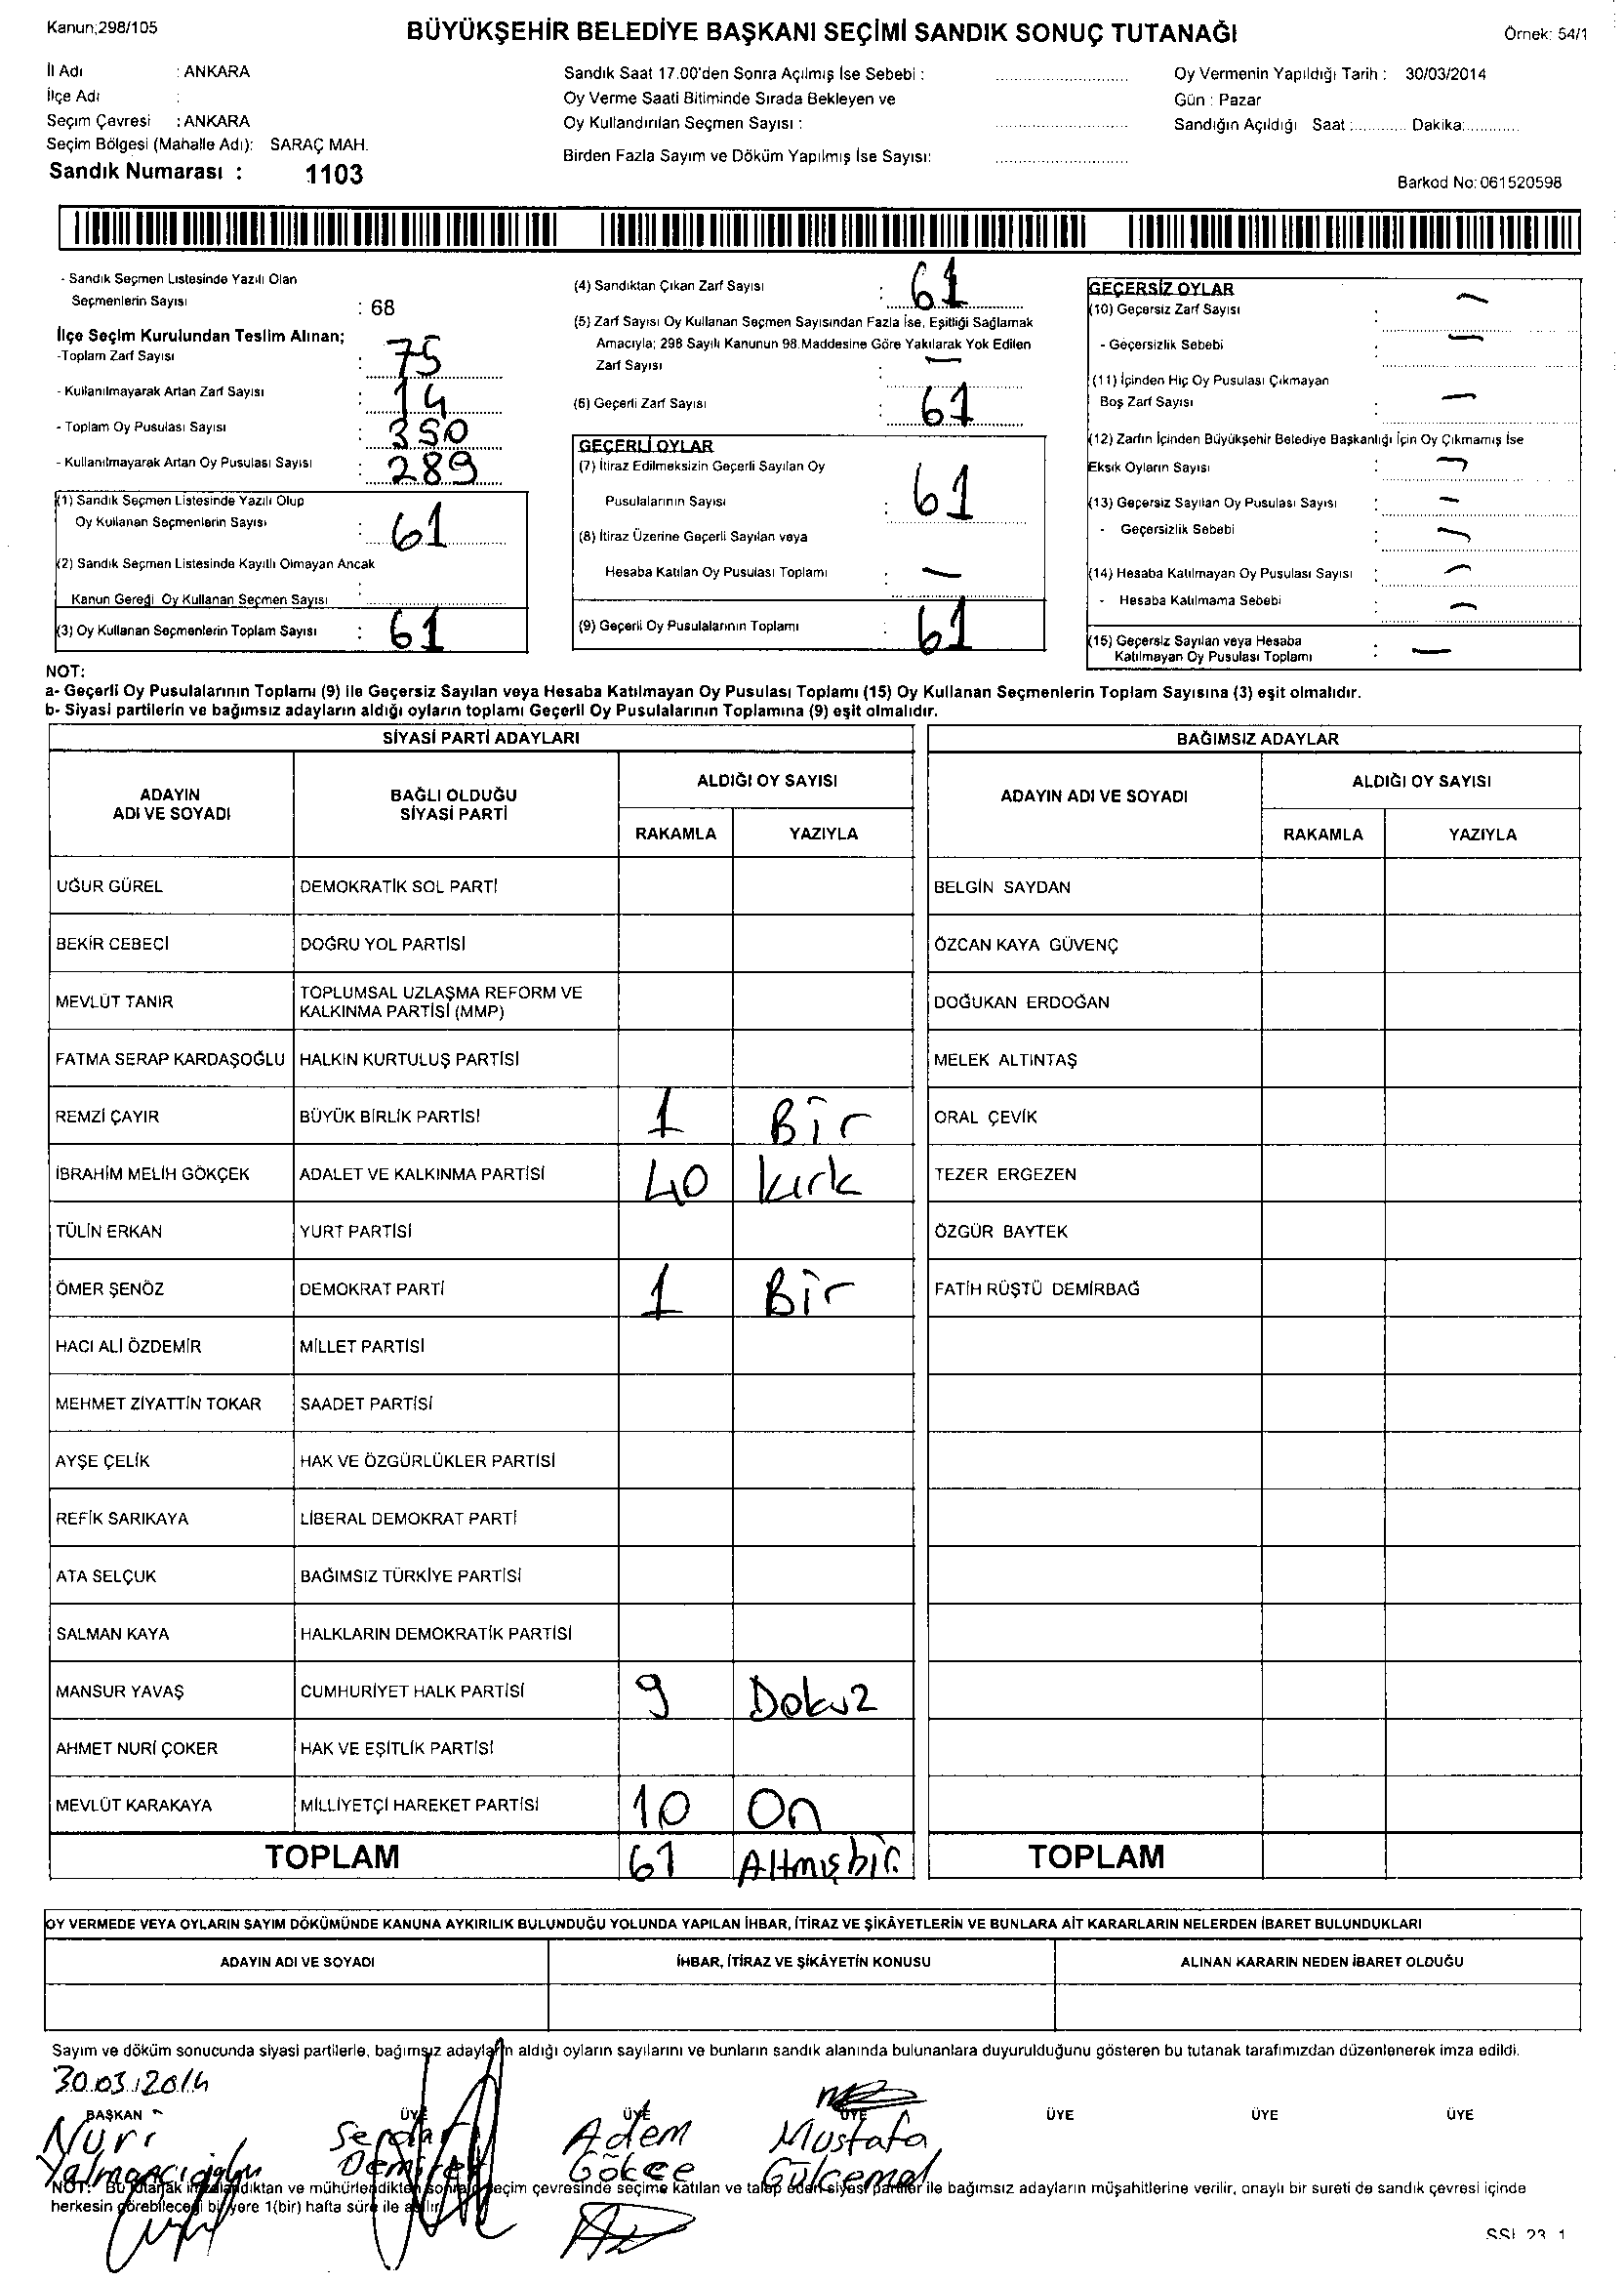 Kanun;298/105
BÜYÜKŞEHİR BELEDİYE BAŞKANI SEÇİMİ SANDIK SONUÇ TUTANAĞI
Örnek: 54/1
İl Adı : ANKARA
İlçe Adı :
Seçim Çevresi : ANKARA
Seçim Bölgesi (Mahalle Adı): SARAÇ MAH.
Sandık Numarası : 1103
Sandık Saat 17.00'den Sonra Açılmış İse Sebebi :
Oy Verme Saati Bitiminde Sırada Bekleyen ve
Oy Kullandırılan Seçmen Sayısı :
Birden Fazla Sayım ve Döküm Yapılmış İse Sayısı:
Oy Vermenin Yapıldığı Tarih : 30/03/2014
Gün : Pazar
Sandığın Açıldığı Saat :............ Dakika:............
Barkod No: 061520598
- Sandık Seçmen Listesinde Yazılı Olan
Seçmenlerin Sayısı : 68
İlçe Seçim Kurulundan Teslim Alınan;
-Toplam Zarf Sayısı : 75
- Kullanılmayarak Artan Zarf Sayısı : 14
- Toplam Oy Pusulası Sayısı : 350
- Kullanılmayarak Artan Oy Pusulası Sayısı : 289
(1) Sandık Seçmen Listesinde Yazılı Olup
Oy Kullanan Seçmenlerin Sayısı : 61
(2) Sandık Seçmen Listesinde Kayıtlı Olmayan Ancak
Kanun Gereği Oy Kullanan Seçmen Sayısı :
(3) Oy Kullanan Seçmenlerin Toplam Sayısı : 61
(4) Sandıktan Çıkan Zarf Sayısı : 61
(5) Zarf Sayısı Oy Kullanan Seçmen Sayısından Fazla İse, Eşitliği Sağlamak
Amacıyla; 298 Sayılı Kanunun 98.Maddesine Göre Yakılarak Yok Edilen
Zarf Sayısı : —
(6) Geçerli Zarf Sayısı : 61
GEÇERLİ OYLAR
(7) İtiraz Edilmeksizin Geçerli Sayılan Oy
Pusulalarının Sayısı : 61
(8) İtiraz Üzerine Geçerli Sayılan veya
Hesaba Katılan Oy Pusulası Toplamı : —
(9) Geçerli Oy Pusulalarının Toplamı : 61
GEÇERSİZ OYLAR
(10) Geçersiz Zarf Sayısı : —
- Geçersizlik Sebebi : —
(11) İçinden Hiç Oy Pusulası Çıkmayan
Boş Zarf Sayısı : —
(12) Zarfın İçinden Büyükşehir Belediye Başkanlığı İçin Oy Çıkmamış İse
Eksik Oyların Sayısı : —
(13) Geçersiz Sayılan Oy Pusulası Sayısı : —
- Geçersizlik Sebebi : —
(14) Hesaba Katılmayan Oy Pusulası Sayısı : —
- Hesaba Katılmama Sebebi : —
(15) Geçersiz Sayılan veya Hesaba
Katılmayan Oy Pusulası Toplamı : —
NOT:
a- Geçerli Oy Pusulalarının Toplamı (9) ile Geçersiz Sayılan veya Hesaba Katılmayan Oy Pusulası Toplamı (15) Oy Kullanan Seçmenlerin Toplam Sayısına (3) eşit olmalıdır.
b- Siyasi partilerin ve bağımsız adayların aldığı oyların toplamı Geçerli Oy Pusulalarının Toplamına (9) eşit olmalıdır.
SİYASİ PARTİ ADAYLARI
ADAYIN ADI VE SOYADI BAĞLI OLDUĞU SİYASİ PARTİ ALDIĞI OY SAYISI
RAKAMLA YAZIYLA
UĞUR GÜREL DEMOKRATİK SOL PARTİ
BEKİR CEBECİ DOĞRU YOL PARTİSİ
MEVLÜT TANIR TOPLUMSAL UZLAŞMA REFORM VE
KALKINMA PARTİSİ (MMP)
FATMA SERAP KARDAŞOĞLU HALKIN KURTULUŞ PARTİSİ
REMZİ ÇAYIR BÜYÜK BİRLİK PARTİSİ 1 Bir
İBRAHİM MELİH GÖKÇEK ADALET VE KALKINMA PARTİSİ 40 kırk
TÜLİN ERKAN YURT PARTİSİ
ÖMER ŞENÖZ DEMOKRAT PARTİ 1 Bir
HACI ALİ ÖZDEMİR MİLLET PARTİSİ
MEHMET ZİYATTİN TOKAR SAADET PARTİSİ
AYŞE ÇELİK HAK VE ÖZGÜRLÜKLER PARTİSİ
REFİK SARIKAYA LİBERAL DEMOKRAT PARTİ
ATA SELÇUK BAĞIMSIZ TÜRKİYE PARTİSİ
SALMAN KAYA HALKLARIN DEMOKRATİK PARTİSİ
MANSUR YAVAŞ CUMHURİYET HALK PARTİSİ 9 Dokuz
AHMET NURİ ÇOKER HAK VE EŞİTLİK PARTİSİ
MEVLÜT KARAKAYA MİLLİYETÇİ HAREKET PARTİSİ 10 On
TOPLAM 61 Altmışbir.
BAĞIMSIZ ADAYLAR
ADAYIN ADI VE SOYADI ALDIĞI OY SAYISI
RAKAMLA YAZIYLA
BELGİN SAYDAN
ÖZCAN KAYA GÜVENÇ
DOĞUKAN ERDOĞAN
MELEK ALTINTAŞ
ORAL ÇEVİK
TEZER ERGEZEN
ÖZGÜR BAYTEK
FATİH RÜŞTÜ DEMİRBAĞ
TOPLAM
OY VERMEDE VEYA OYLARIN SAYIM DÖKÜMÜNDE KANUNA AYKIRILIK BULUNDUĞU YOLUNDA YAPILAN İHBAR, İTİRAZ VE ŞİKÂYETLERİN VE BUNLARA AİT KARARLARIN NELERDEN İBARET BULUNDUKLARI
ADAYIN ADI VE SOYADI İHBAR, İTİRAZ VE ŞİKÂYETİN KONUSU ALINAN KARARIN NEDEN İBARET OLDUĞU
Sayım ve döküm sonucunda siyasi partilerle, bağımsız adayların aldığı oyların sayılarını ve bunların sandık alanında bulunanlara duyurulduğunu gösteren bu tutanak tarafımızdan düzenlenerek imza edildi.
30.03.2014
BAŞKAN ÜYE ÜYE ÜYE ÜYE ÜYE ÜYE
Nuri Serdar Adem Mustafa
Yalmancıoğlu Demirel Gökçe Gülcemal
NOT: Bu tutanak imzalandıktan ve mühürlendikten sonra seçim çevresinde seçime katılan ve talep eden siyasi partiler ile bağımsız adayların müşahitlerine verilir, onaylı bir sureti de sandık çevresi içinde
herkesin görebileceği bir yere 1(bir) hafta süre ile asılır.